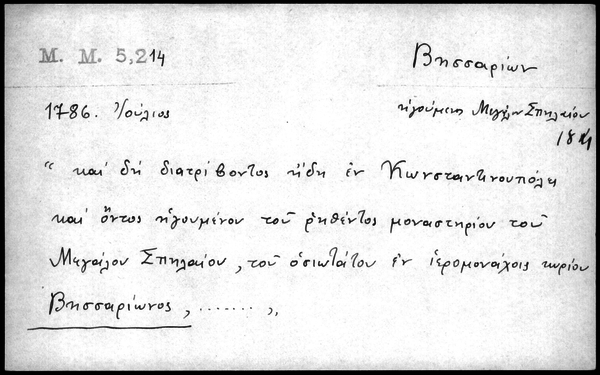 M. M. 5,214
Βησσαρίων
1786. Ἰούλιος
ἡγούμενος Μεγάλου Σπηλαίου
“ καί δή διατρίβοντος ἤδη ἐν Κωνσταντινουπόλει
καί ὄντος ἡγουμένου τοῦ ῥηθέντος μοναστηρίου τοῦ
Μεγάλου Σπηλαίου, τοῦ ὁσιωτάτου ἐν ἱερομονάχοις κυρίου
Βησσαρίωνος, ....... ”